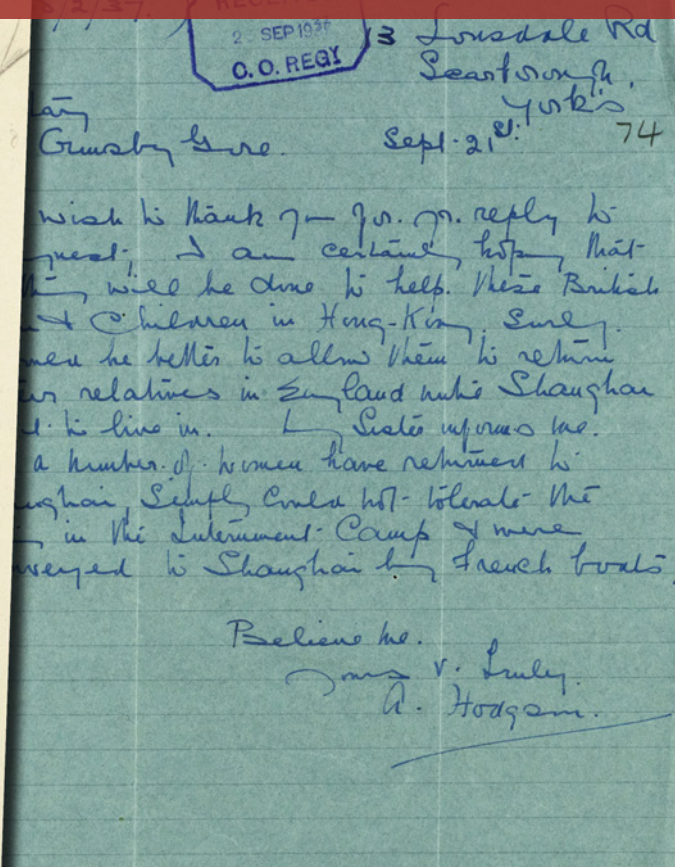 8/2/37.
RECEIVED
2 SEP 193
C. O. REGY
3 Lonsdale Rd
Scarborough,
York's.
Ormsby Gore. Sept. 21st.
74
wish to thank for. yr. reply to
I am certainly hoping that
will be done to help. these British
& Children in Hong-Kong. Surely.
be better to allow them to return
relatives in England until Shanghai
to live in. My Sister informs me.
a number. of. women have returned to
Simply Could not tolerate the
in the Internment Camp & were
veyed to Shanghai by French boats.
Believe me.
Yours v. Truly.
A. Hodgson.